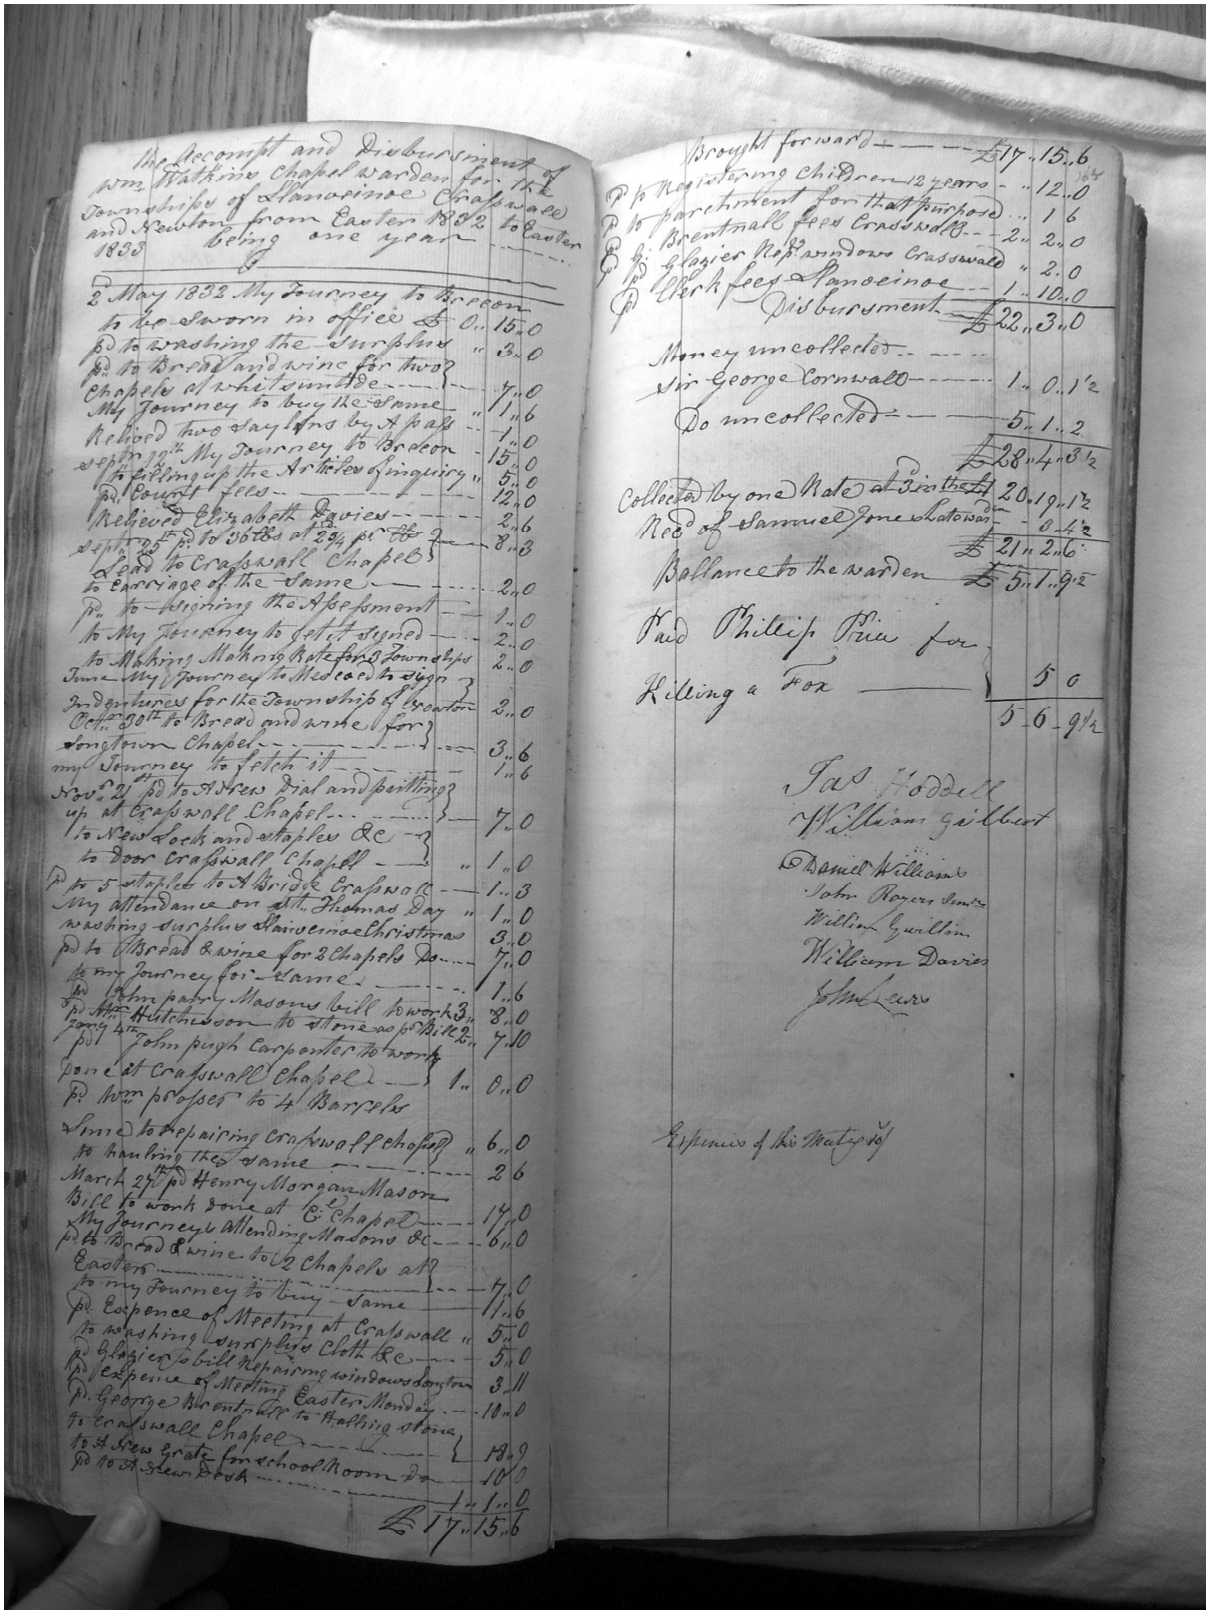 the Accompt and Disbursiment of
Wm Watkins Chapel warden for the
Townships of Llanveinoe Crasswall
and Newton from Easter 1832 to Easter
1833 being one year
2d May 1832 My Journey to Brecon
to be sworn in office £ 0,, 15,, 0
pd to washing the surplus ,, 3,, 0
pd to Bread and wine for two
Chapels at whitsuntide 7,, 0
My Journey to buy the same ,, 1,, 6
Relived two saylors by A pass 1,, 0
septr 12th My Journey to Brecon 15,, 0
to filling up the Articles of inquiry ,, 5,, 0
pd Court fees 12,, 0
Relieved Elizabeth Davies 2,, 6
septr 25th pd to 36 lbs at 2¾ pr lb
Lead to Crasswall Chapel 8,, 3
to Carriage of the same 2,, 0
pd to signing the Assessment 1,, 0
to My Journey to get it signed 2,, 0
to Making Making Rate for 3 Townships 2,, 0
June My Journey to to sign
Indentures for the Township of Newton 2,, 0
Octr 30th to Bread and wine for
Longtown Chapel 3,, 6
my Journey to fetch it 1,, 6
Novr 21st pd to A New Dial and putting
up at Crasswall Chapel 7,, 0
to New Lock and staples &c
to Door Crasswall Chapell ,, 1,, 0
pd to 5 staples to A Bridge Crasswall 1,, 3
My attendance on st Thomas Day ,, 1,, 0
washing surplus Llanveinoe Christmas 3,, 0
pd to Bread & wine for 2 Chapels Do 7,, 0
to my Journey for same 1,, 6
pd John parry Masons bill to work 3,, 8,, 0
pd Mr Hutchisson to stone as pr Bill 2,, 7,, 10
Jany 4th
pd John pugh Carpenter to work
Done at Crasswall Chapel 1,, 0,, 0
pd Wm prosser to 4 Barrels
Lime to repairing Crasswall Chapel ,, 6,, 0
to hauling the same 2 6
March 27th pd Henry Morgan Mason
Bill to work Done at Cl Chapel 17,, 0
My Journeys attending Masons &c 6,, 0
pd to Bread & wine to 2 Chapels at
Easter 7,, 0
to my Journey to buy same 1,, 6
pd Expence of Meeting at Crasswall ,, 5,, 0
to washing surplus Cloth &c 5,, 0
pd Glazier's bill Repairing windows Longtown 3,, 11
pd expence of Meeting Easter Monday 10,, 0
pd George Brentnall to Halling stone
to Crasswall Chapel 18,, 9
to A New Grate for school Room Do 10 0
pd to A New Desk 1,, 1,, 0
£ 17,, 15,, 6
Brought forward £17,, 15,, 6
pd to Registering Children 12 years ,, 12,, 0
pd to parchment for that purpose 1 6
pd G: Brentnall fees Crasswall 2,, 2,, 0
pd Glazier Repg windows Crasswall ,, 2,, 0
pd Clerk fees Llanveinoe 1,, 10,, 0
Disbursment £22,, 3,, 0
Money uncollected
Sir George Cornwall 1,, 0,, 1½
Do uncollected 5,, 1,, 2
£28,, 4,, 3½
Collected by one Rate at 3 in the £ 20,, 19,, 1½
Recd of Samuel Jones 0,, 4½
£ 21,, 2,, 6
Ballance to the warden £ 5,, 1,, 9½
Paid Phillip Price for
Killing a Fox 5 0
5 - 6 - 9½
Jas Hoddell
William Gilbert
Daniel Williams
John Rogers
William Gwillim
William Davies
John Lewis
Expences of this Meeting 10/